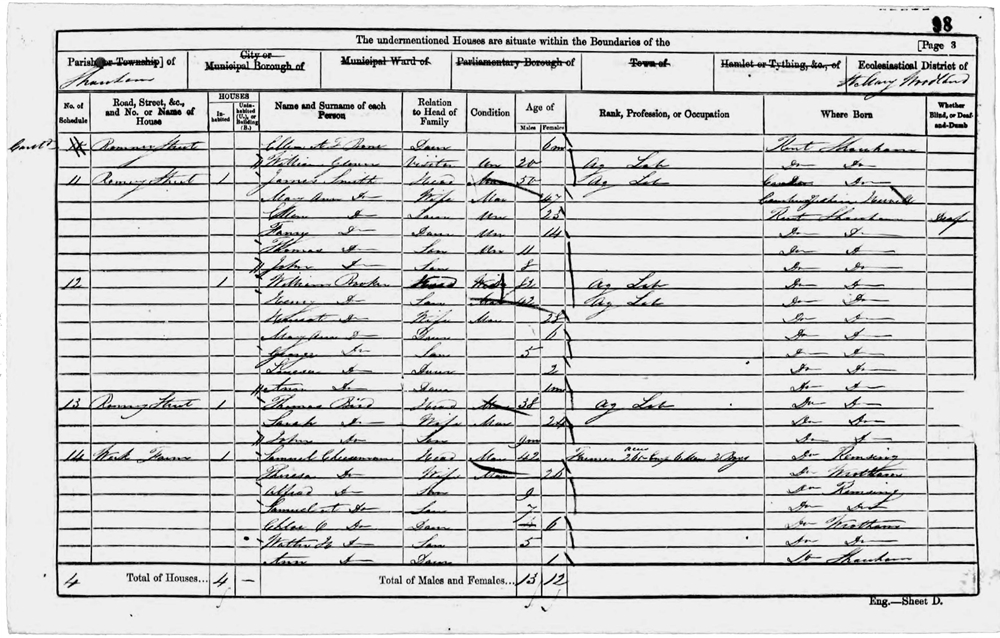 98
The undermentioned Houses are situate within the Boundaries of the
[Page 3
Parish [or Township] of City or Municipal Borough of Municipal Ward of Parliamentary Borough of Town of Hamlet or Tything, &c., of Ecclesiastical District of
Shoreham St Mary Woodland
No. of Schedule Road, Street, &c., and No. or Name of House HOUSES Inhabited Uninhabited (U.), or Building (B.) Name and Surname of each Person Relation to Head of Family Condition Age of Males Females Rank, Profession, or Occupation Where Born Whether Blind, or Deaf-and-Dumb
Romney Street Daur 6m Kent Shoreham
William Visitor Un 20 Ag Lab Do Do
11 Romney Street 1 James Smith Head Mar 50 Ag Lab Do
Mary Ann Do Wife Mar 47
Ellen Do Un 25 Kent Shoreham Deaf
Fanny Do Daur Un 14 Do Do
Thomas Do Son Un 11 Do Do
John Do Son 8 Do Do
12 1 William Booker Head 82 Ag Lab Do Do
Henry Do Son Mar 42 Ag Lab Do Do
Do Wife Mar 28 Do Do
Mary Ann Do Daur 6 Do Do
George Do Son 5 Do Do
Do Daur 2 Do Do
Ann Do Daur 1m Do Do
13 Romney Street 1 Thomas Bird Head Mar 38 Ag Lab Do Do
Sarah Do Wife Mar 24 Do Do
John Do Son 9m Do Do
14 Farm 1 Samuel Cheeseman Head Mar 42 Farmer 6 Men 2 Boys Do Kemsing
Theresa Do Wife Mar 26 Do Wrotham
Alfred Do Son 9 Do Kemsing
Samuel Do Son 7 Do Do
Chloe C Do Daur 6 Do Wrotham
Walter H Do Son 5 Do Do
Ann Do Daur 1 Do Shoreham
4 Total of Houses... 4 — Total of Males and Females... 13 12
Eng.—Sheet D.